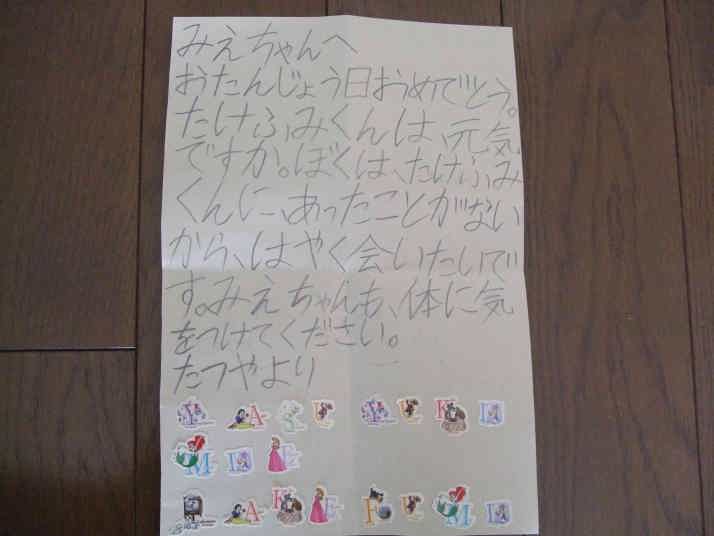 みえちゃんへ
おたんじょう日おめでとう。
たけふみくんは、元気
ですか。ぼくは、たけふみ
くんに、あったことがない
から、はやく会いたいで
す。みえちゃんも、体に気
をつけてください。
たつやより
M I E
A K E F U M I